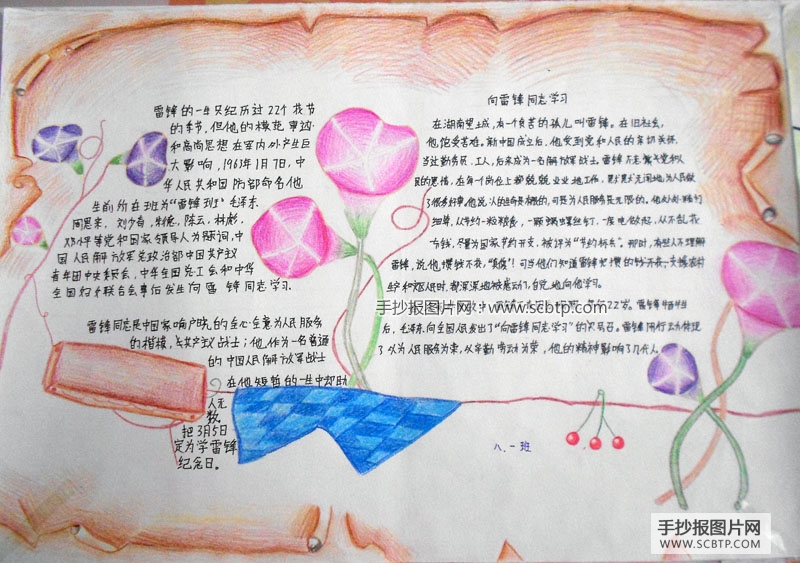 雷锋的一生只纪历过22个找节
的季节,但他的模范事迹
和高尚思想在室内外产生巨
大影响,1963年1月7日,中
华人民共和国防部命名他
生前所在班为“雷锋班”毛泽东.
周恩来、刘少奇,朱德,陈云,林彪,
邓小平等党和国家领导人为题词,中
国人民解放军总政治部中国共产主义
青年团中央委员会,中华全国总工会和中华
全国妇女联合会事后发生向雷锋同志学习.
雷锋同志是中国家喻户晓的全心全意为人民服务
的楷模,共产主义战士;他作为一名普通
的中国人民解放军战士
在他短暂的一生中帮助
人无
数.
把3月5日
定为学雷锋
纪念日。
向雷锋同志学习
在湖南望城,有一个贫苦的孤儿叫雷锋。在旧社会,
他饱受苦难。新中国成立后,他受到党和人民的亲切关怀,
当过勤务员、工人,后来成为一名解放军战士.雷锋不忘党和人
民的恩情,在每个岗位上都兢兢业业地工作,默默无闻地为人民做
了很多好事,他说:人的生命是有限的,可是为人民服务是无限的。他处处
一颗螺丝钉,一度电做起,从不乱花
一分钱,尽量为国家节约开支,被评为“节约标兵”。那时,有些人不理解
雷锋,说他攒钱不花,“真傻”!可当他们知道雷锋
都深深地被感动了,自觉地向他学习。
22岁。雷锋牺牲
后,毛泽东向全国人民发出了“向雷锋同志学习”的号召。雷锋用行动体现
了以为人民服务为荣,以辛勤劳动为荣,他的精神影响了几代人。
八、一班
手抄报图片网 www.scbtp.com
手抄报图片网
WWW.SCBTP.COM